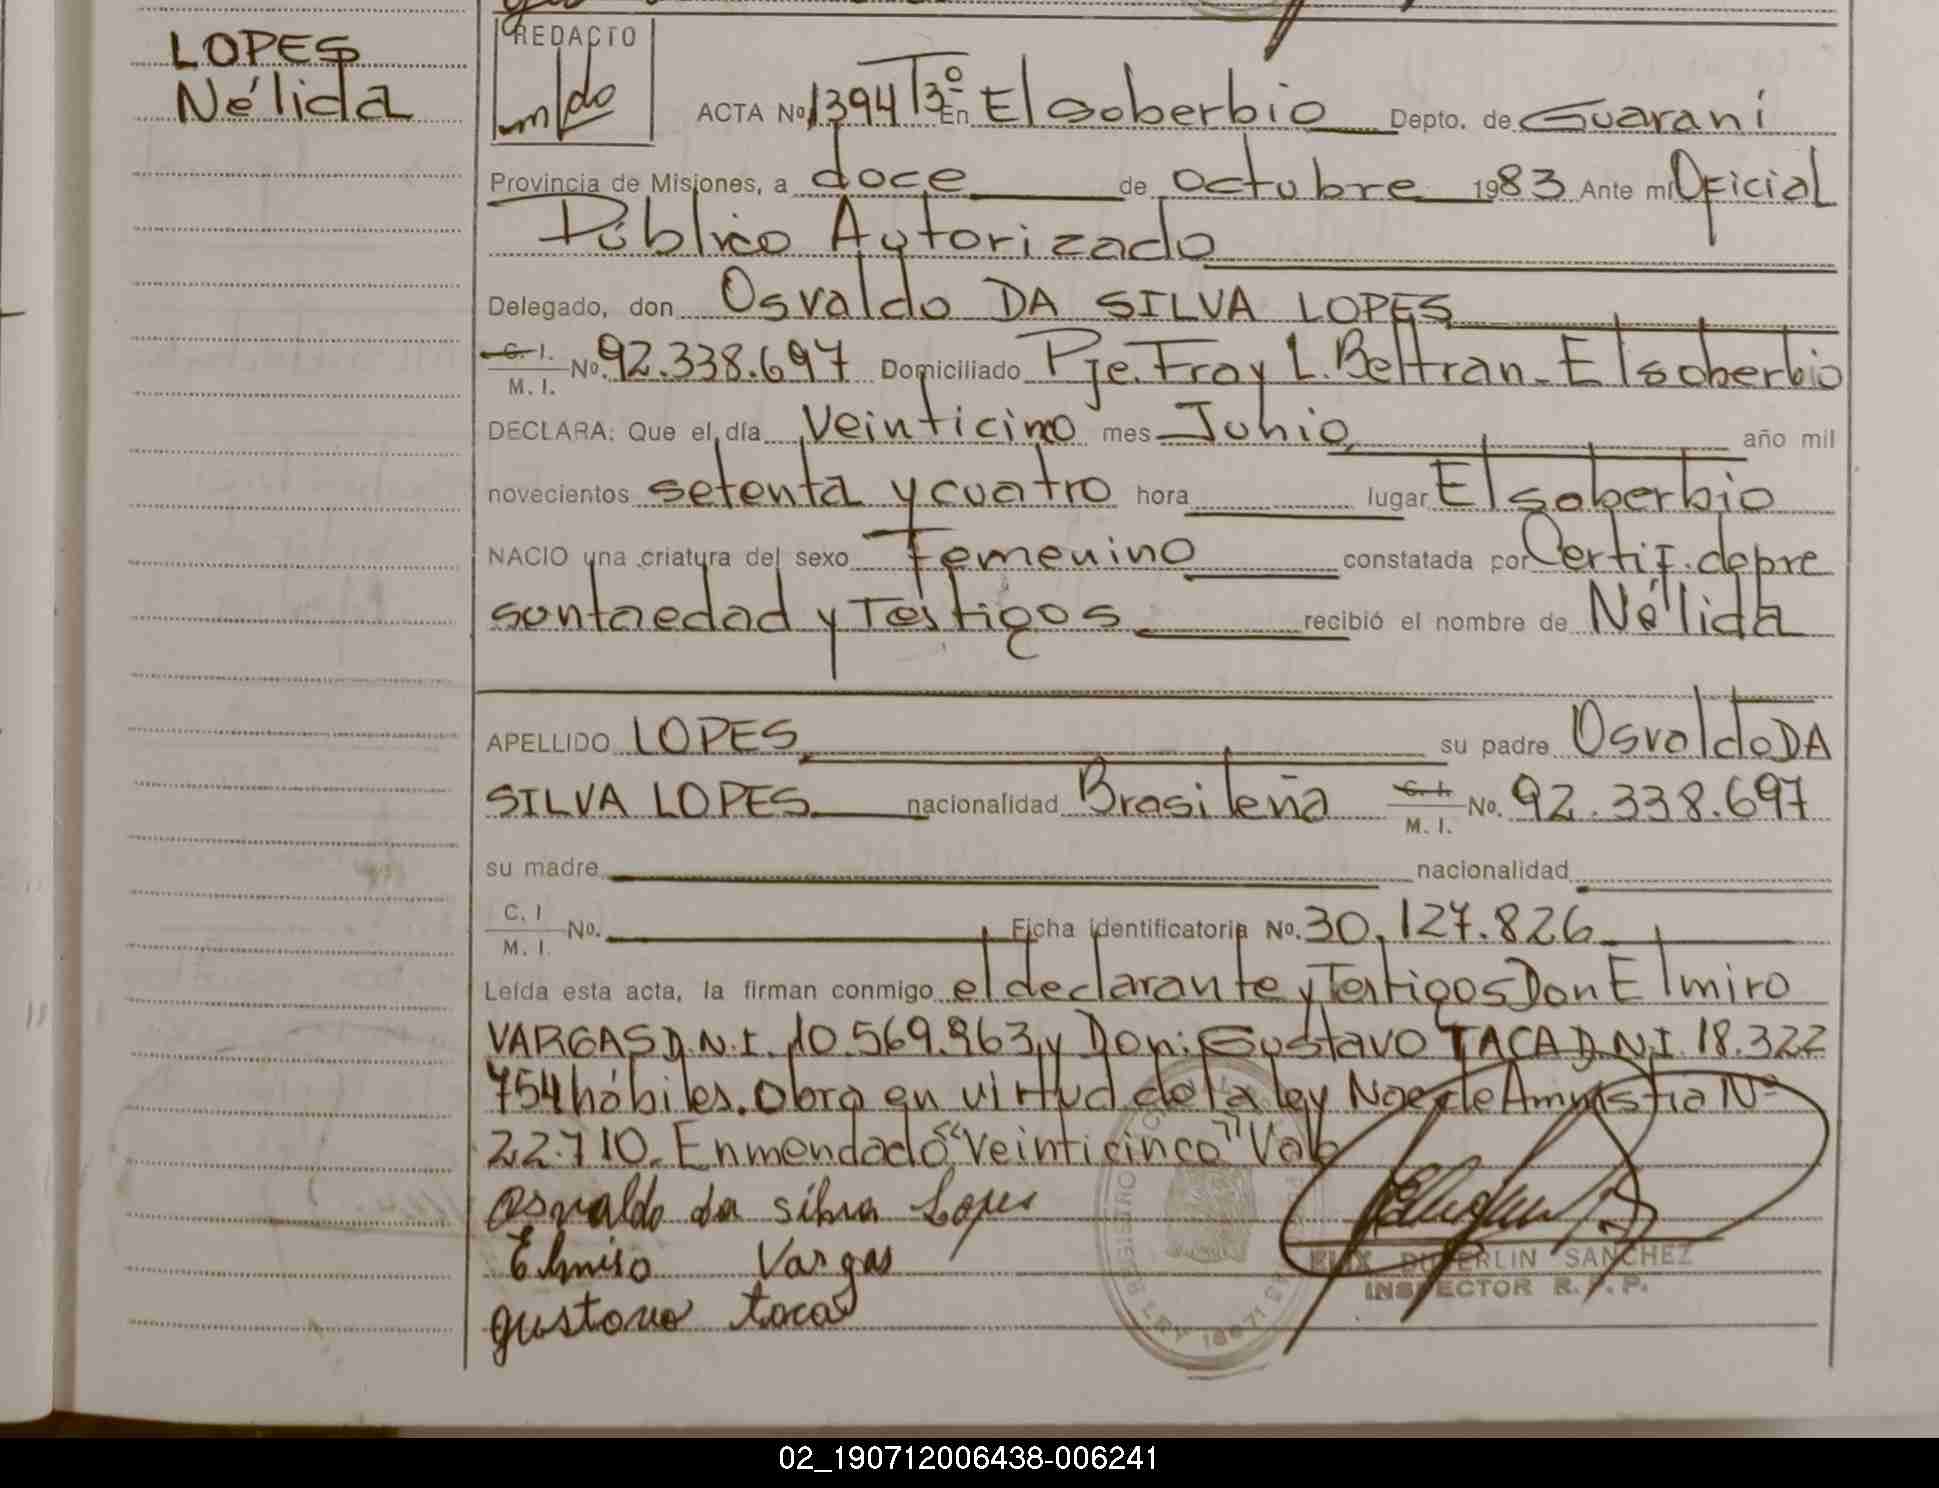 LOPES
Nélida
REDACTO
ACTA Nº 1394 Tº 3º En El soberbio Depto. de Guaraní
Provincia de Misiones, a doce de octubre 1983 Ante mí Oficial
Público Autorizado
Delegado, don Osvaldo DA SILVA LOPES
C. I. M. I. Nº. 92.338.697 Domiciliado Pje. Fray L. Beltran - El soberbio
DECLARA: Que el día Veinticinco mes Junio año mil
novecientos setenta y cuatro hora lugar El soberbio
NACIO una criatura del sexo Femenino constatada por Certif. de pre
sunta edad y Testigos recibió el nombre de Nélida
APELLIDO LOPES su padre Osvaldo DA
SILVA LOPES nacionalidad Brasileña C. I. M. I. Nº. 92.338.697
su madre nacionalidad
C. I M. I. Nº. Ficha identificatoria Nº. 30.127.826
Leída esta acta, la firman conmigo el declarante y Testigos Don Elmiro
VARGAS D.N.I. 10.569.963 y Don: Gustavo TACA D.N.I. 18.322
754 hábiles. Obra en virtud de la ley de Amnistia Nº
22.710. Enmendado "Veinticinco" Vale
Osvaldo da silva Lopes
Elmiro Vargas
gustavo taca
REGISTRO
LEY 18671
SANCHEZ
INSPECTOR R. P. P.
02_190712006438-006241